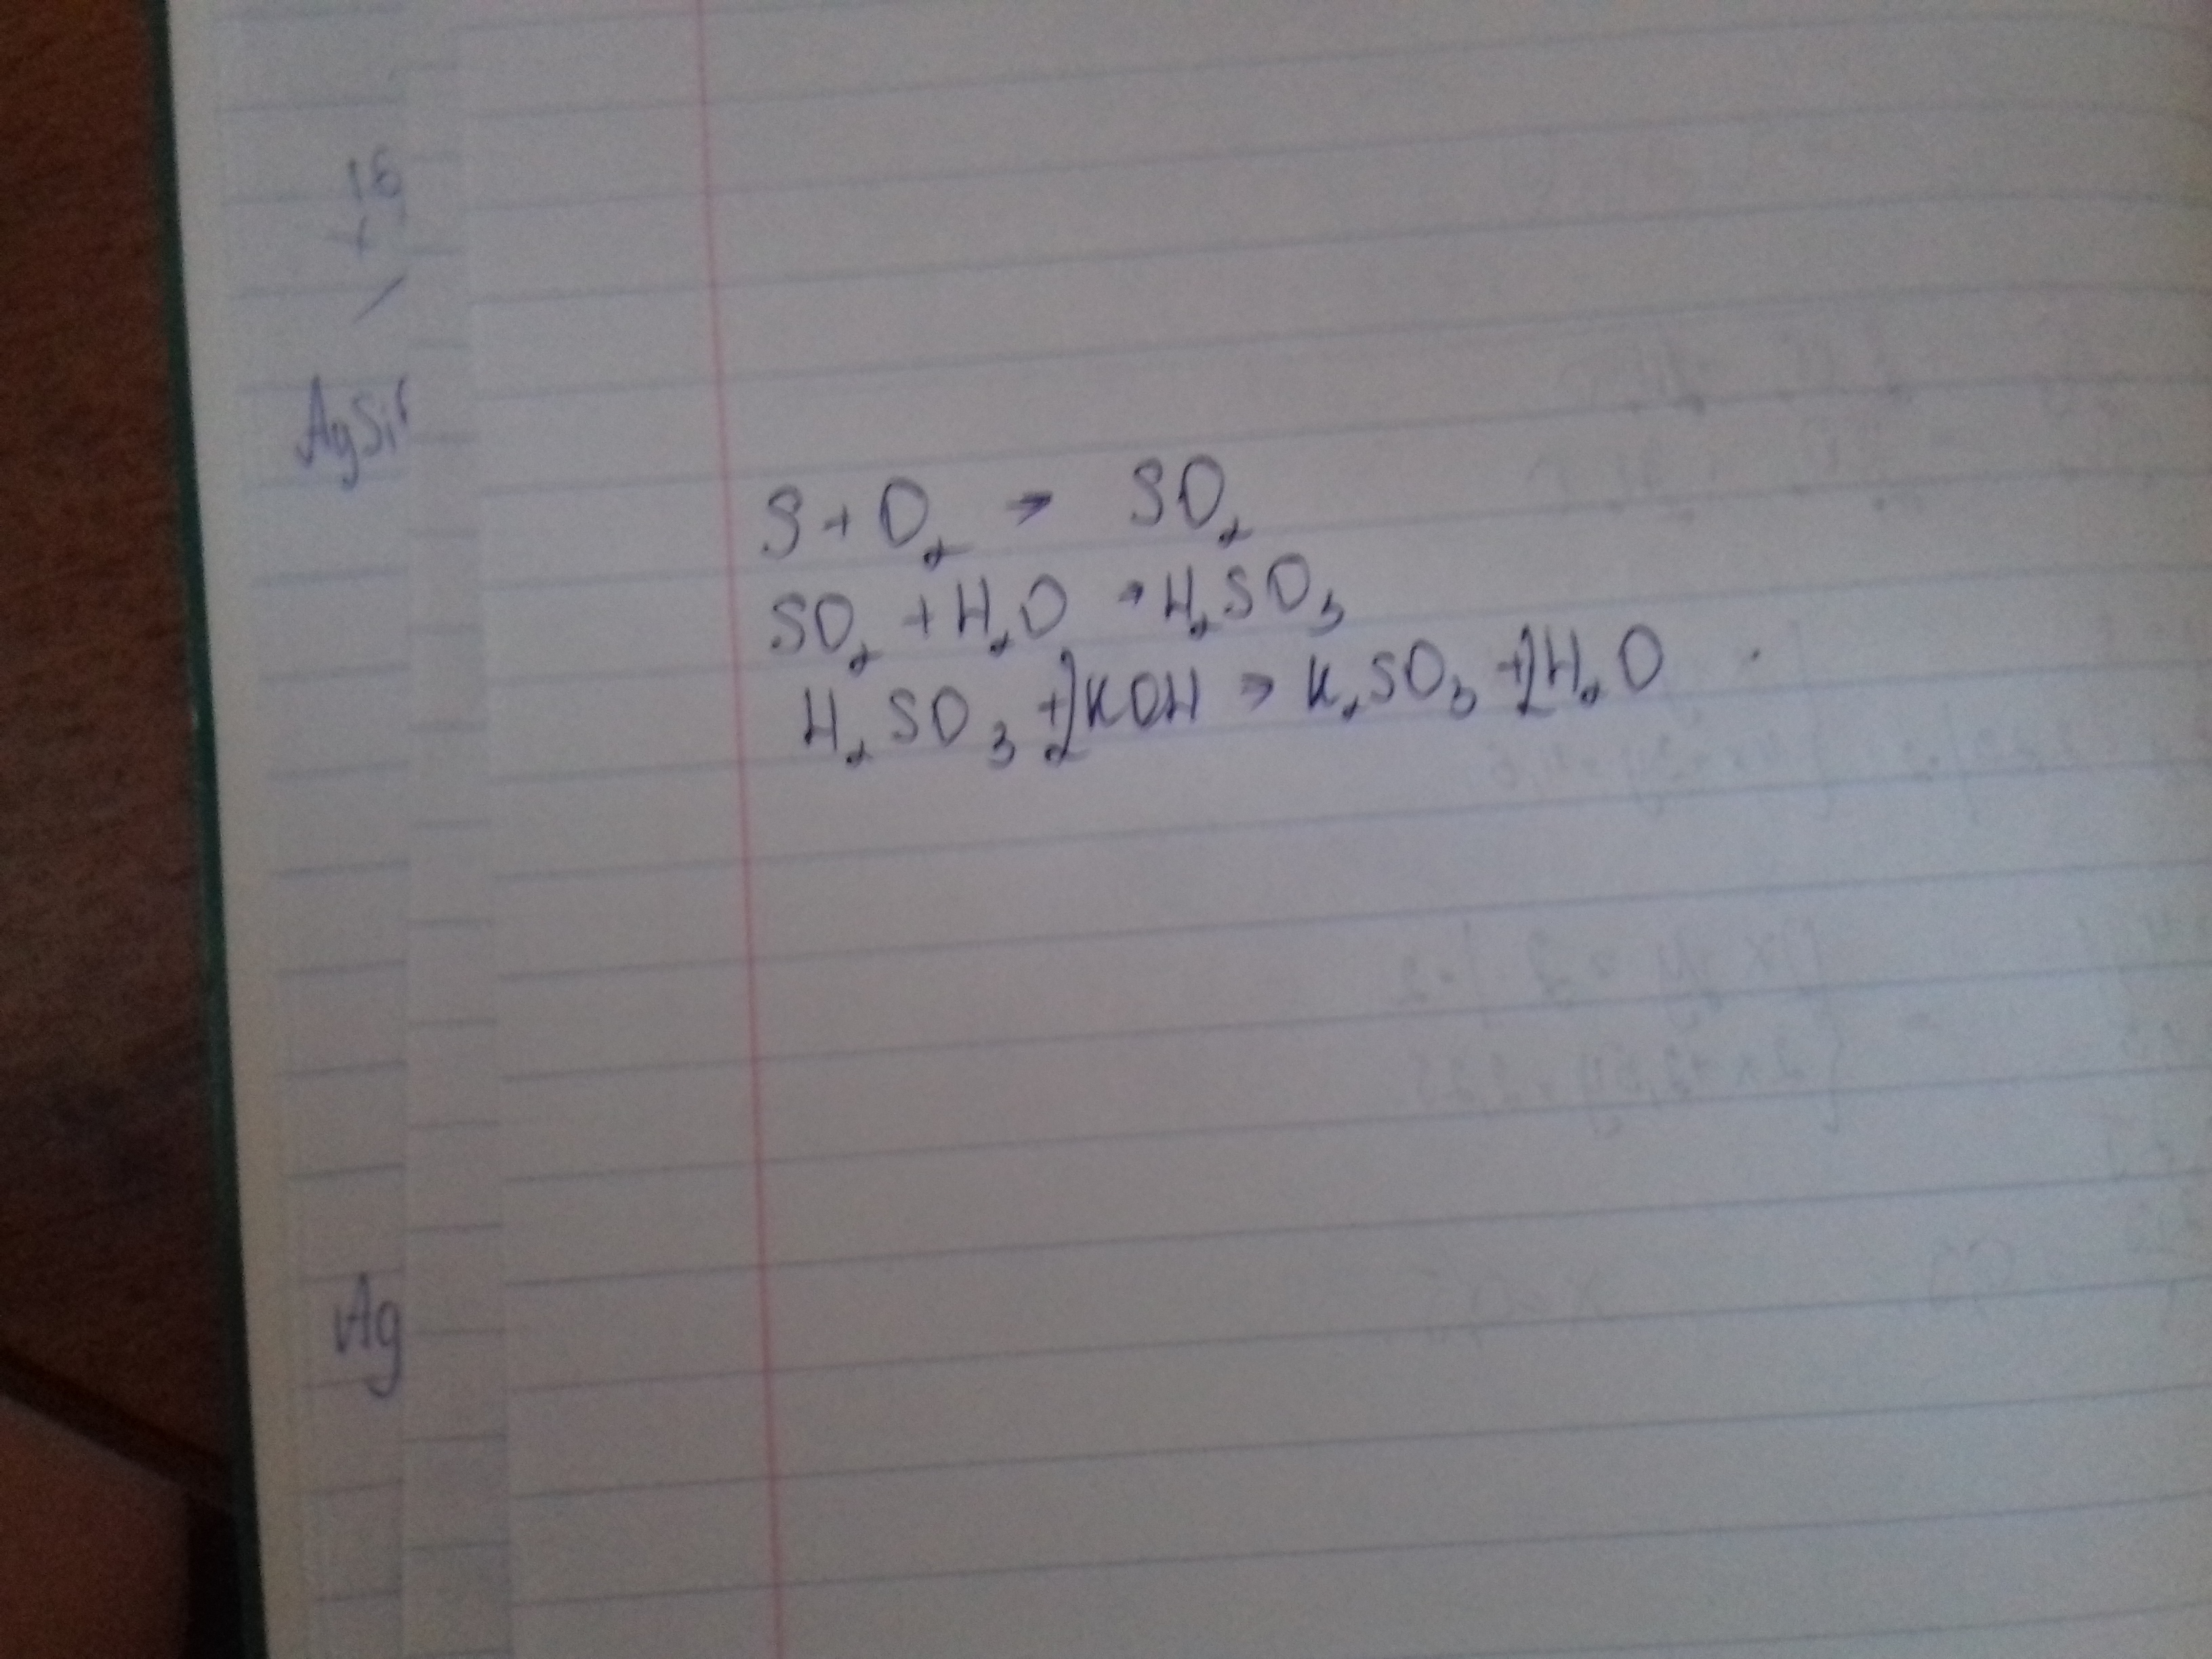 16
+
AgSi
S + O₂ → SO₂
SO₂ + H₂O → H₂SO₃
H₂SO₃ + 2KOH → K₂SO₃ + 2H₂O
Ag